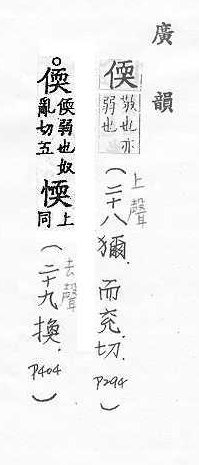 廣韻
偄 敬也亦弱也 (上聲 二十八獮. 而兗切. P294)
偄 偄弱也奴亂切五 愞 上同 (去聲 二十九換. P404)